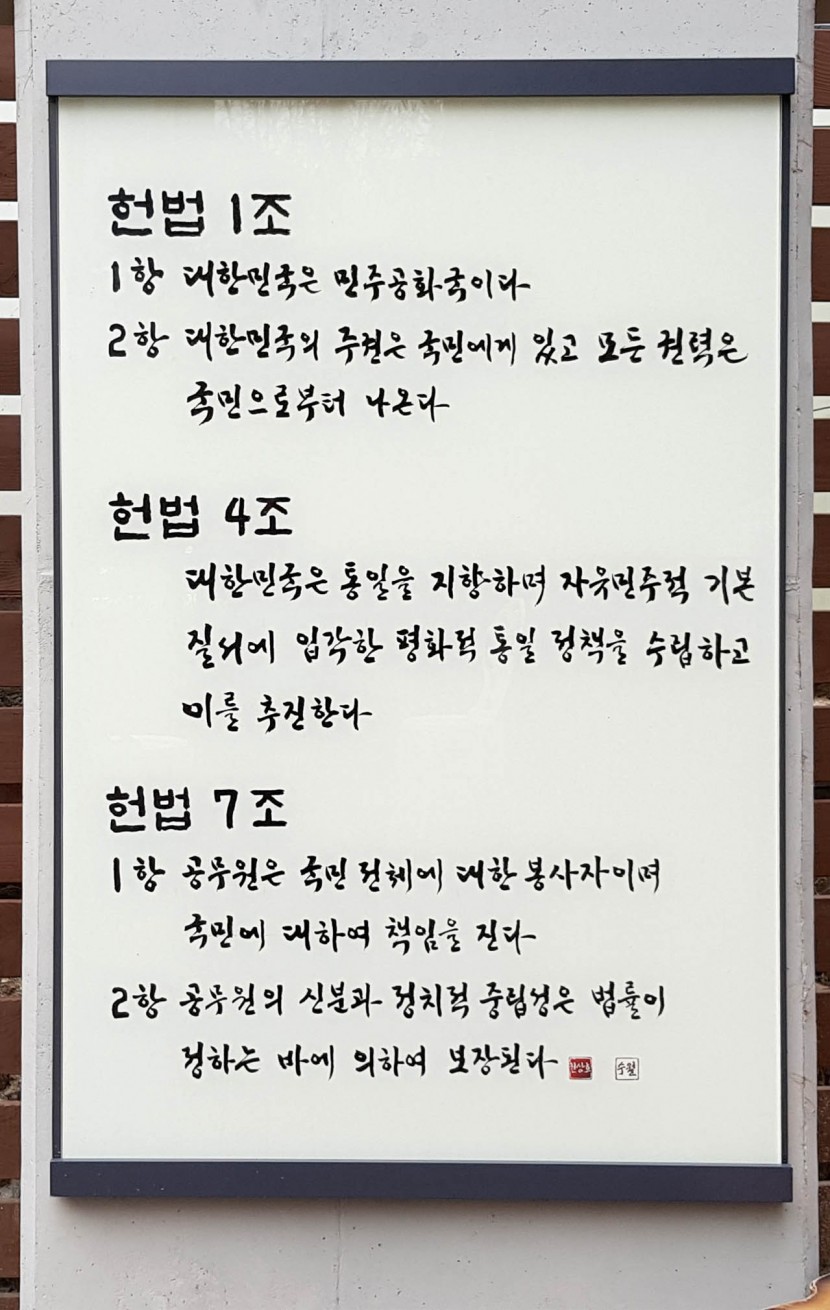 헌법 1조
1항 대한민국은 민주공화국이다
2항 대한민국의 주권은 국민에게 있고 모든 권력은
국민으로부터 나온다
헌법 4조
대한민국은 통일을 지향하며 자유민주적 기본
질서에 입각한 평화적 통일 정책을 수립하고
이를 추진한다
헌법 7조
1항 공무원은 국민 전체에 대한 봉사자이며
국민에 대하여 책임을 진다
2항 공무원의 신분과 정치적 중립성은 법률이
정하는 바에 의하여 보장된다
수월